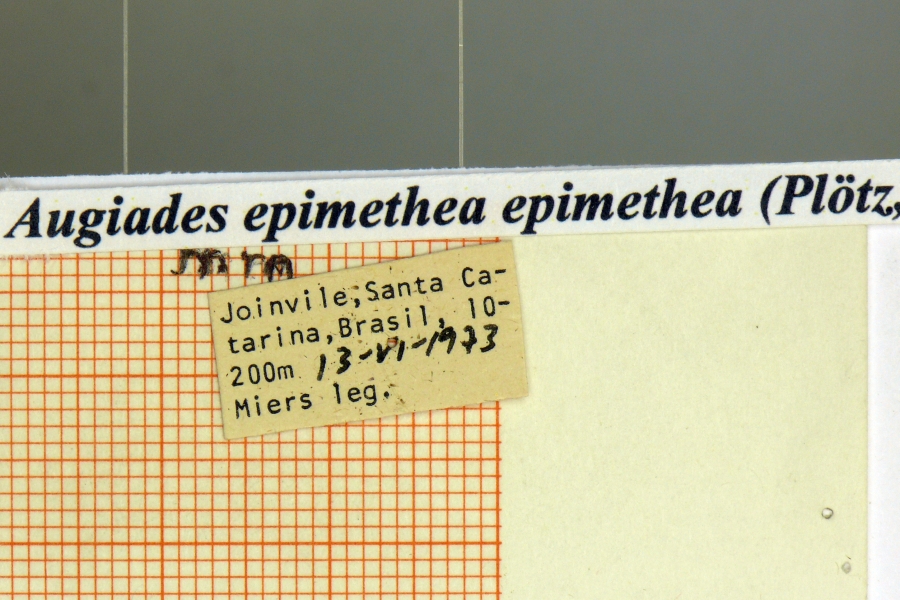 Augiades epimethea epimethea (Plötz,
mm
Joinvile,Santa Ca-
tarina,Brasil, 10-
200m 13-VI-1973
Miers leg.